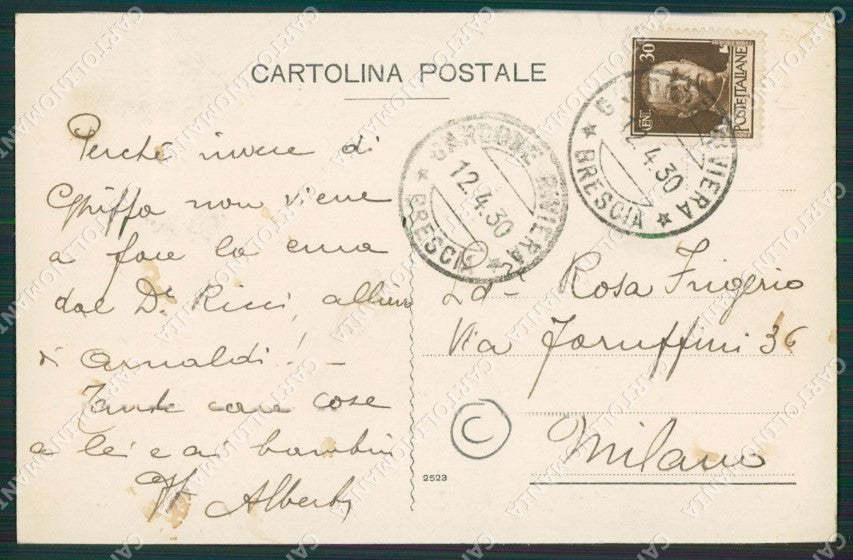 CARTOLINA POSTALE
Perché invece di
Ghiffa non viene
a fare la cura
dal Dr. Ricci, allievo
di Arnaldi! –
Tante care cose
a lei e ai bambini
Alberti
2523
30
CENT
POSTE ITALIANE
GARDONE RIVIERA
12.4.30
★ BRESCIA ★
RIVIERA
12.4.30
★ BRESCIA ★
Rosa Frigerio
Via Joruffini 36
Milano
C
CARTOLINOMANIA